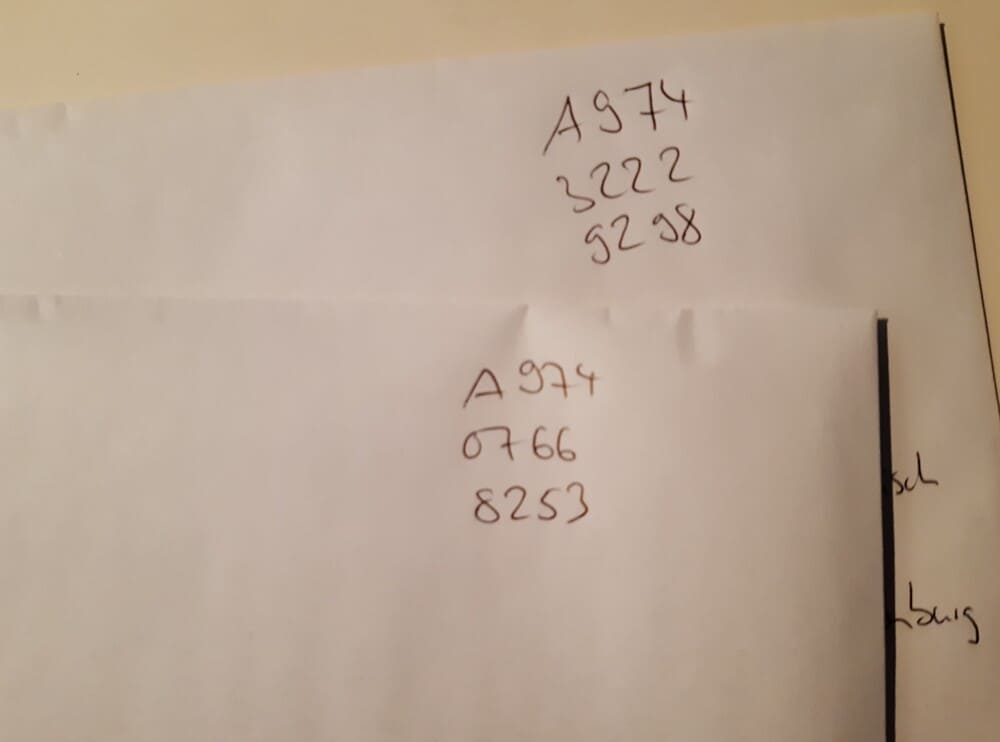 A974
3222
9298
A974
0766
8253
sch
burg